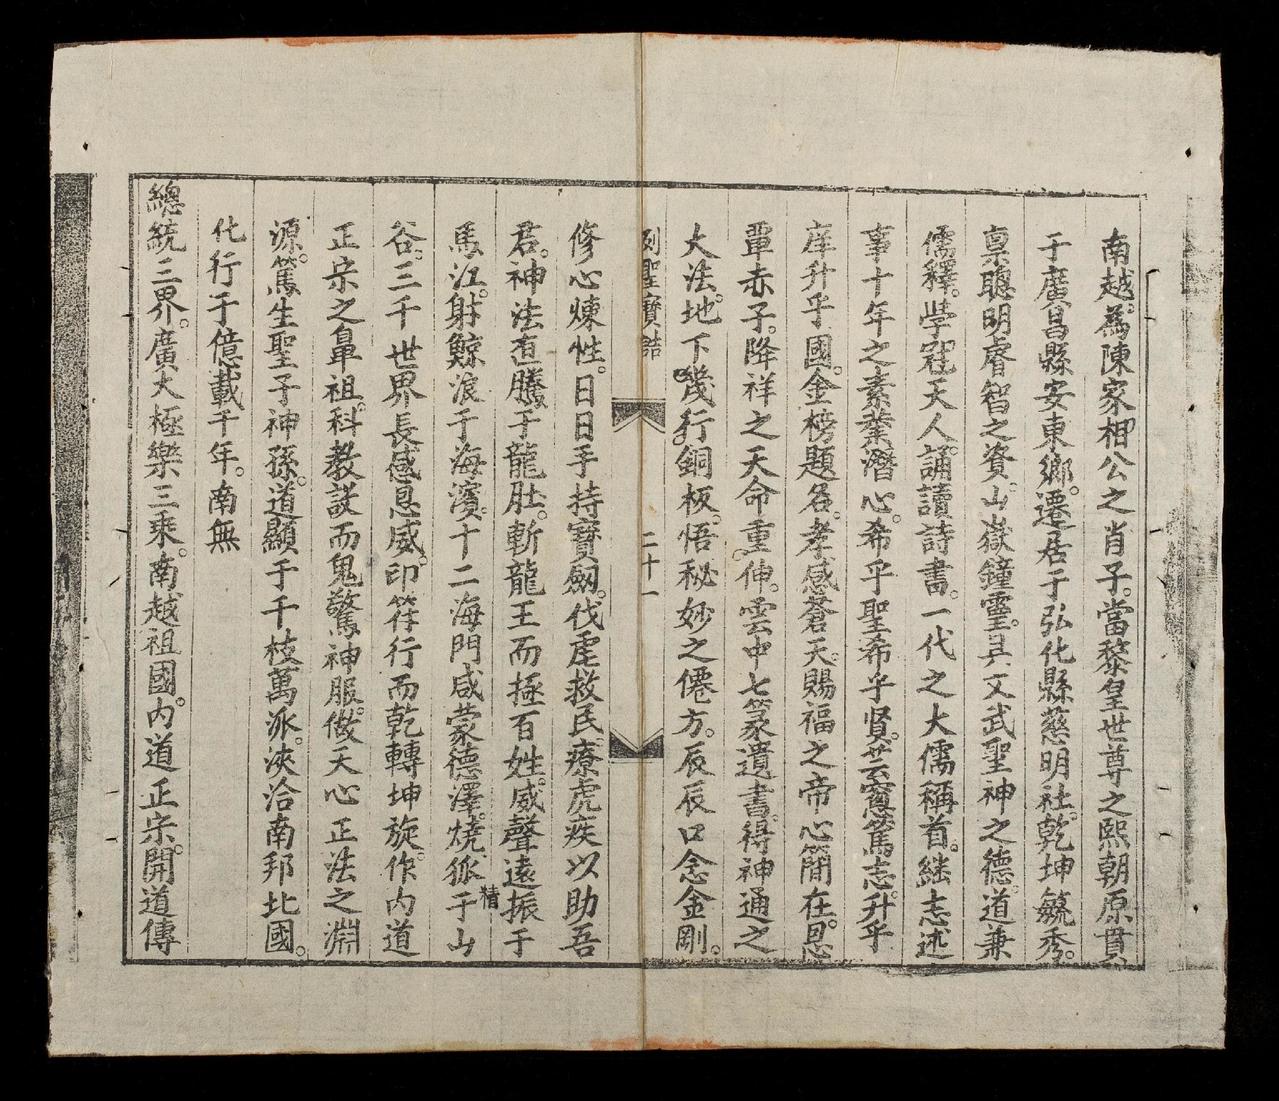 南越。為陳家相公之肖子。當黎皇世尊之熙朝原貫
于廣昌縣安東鄉。遷居于弘化縣慈明社。乾坤毓秀。
禀聰明睿智之資。山嶽鐘靈。具文武聖神之德。道兼
儒釋。學冠天人。誦讀詩書。一代之大儒稱首。継志述
事十年之素業潛心。希乎聖希乎贤。芸窓篤志。升乎
庠升乎國。金榜題名。孝感蒼天。賜福之帝心簡在。恩
覃赤子。降祥之天命重伸。雲中七篆遺書。得神通之
大法。地下幾行銅板。悟秘妙之僊方。辰辰口念金剛。
列聖寶誥
二十一
修心煉性。日日手持寶劔。伐虐救民療虎疾以助吾
君。神法直騰于龍肚。斬龍王而拯百姓。威聲遠振于
馬江。射鯨浪于海濱。十二海門咸蒙德澤。燒狐精于山
谷。三千世界長感恩威。印符行而乾轉坤旋。作内道
正宗之鼻祖。科教設而鬼驚神服。做天心正法之淵
源。篤生聖子神孫。道顯于千枝萬派。浹洽南邦北國。
化行于億載千年。南無
總統三界。廣大極樂三乘。南越祖國。内道正宗。開道傳